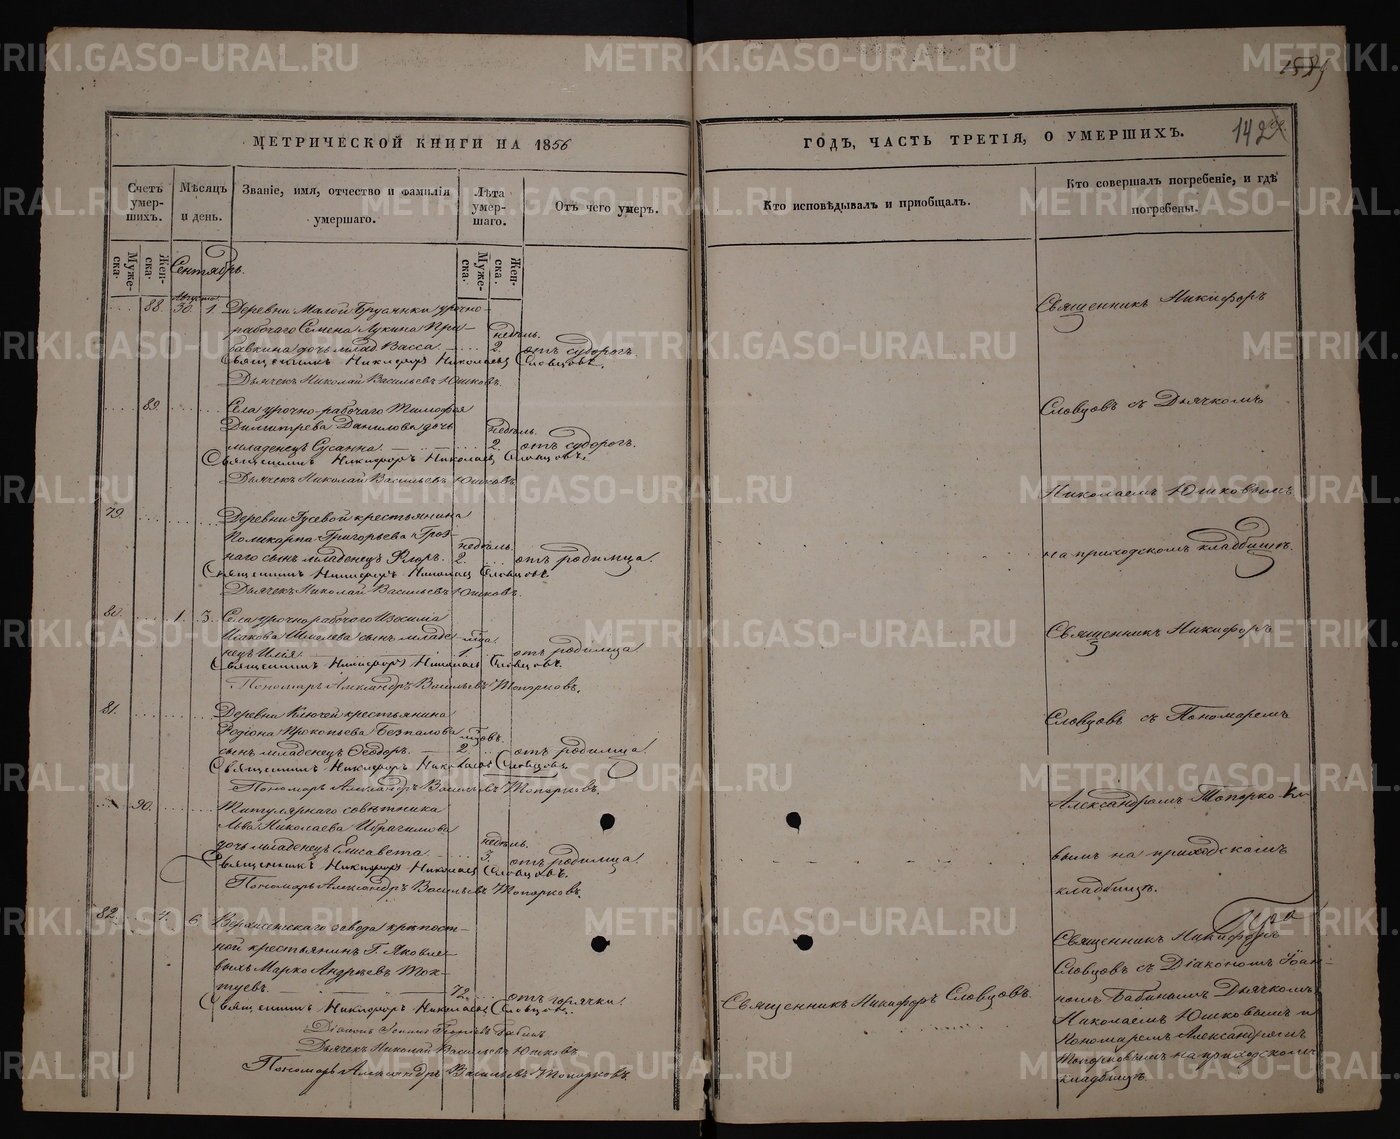 МЕТРИЧЕСКОЙ КНИГИ НА 1856
ГОДЪ, ЧАСТЬ ТРЕТІЯ, О УМЕРШИХЪ.
142
Счетъ умер-шихъ.
Мѣсяцъ и день.
Званіе, имя, отчество и фамилія умершаго.
Лѣта умер-шаго.
Отъ чего умеръ.
Кто исповѣдывалъ и пріобщалъ.
Кто совершалъ погребеніе, и гдѣ погребены.
Муже-ска.
Жен-ска.
Сентябрь.
Муже-ска.
Жен-ска.
Августа
88. 30. 1. Деревни Малой Брусянки урочно-
рабочаго Семена Лукина При-
недѣль.
бавкина дочь млад. Васса. 2. отъ судорогъ.
Священникъ Никифоръ Николаевъ Словцовъ.
Дьячекъ Николай Васильевъ Юшковъ.
89. Села урочно-рабочаго Тимофея
Димитрева Данилова дочь недѣль.
младенецъ Сусанна. 2. отъ судорогъ.
Священникъ Никифоръ Николаевъ Словцовъ.
Дьячекъ Николай Васильевъ Юшковъ
79. Деревни Гусевой крестьянина
Поликарпа Григорьева Гроз-
недѣль.
наго сынъ младенецъ Флоръ. 2. отъ родимца.
Священникъ Никифоръ Николаевъ Словцовъ.
Дьячекъ Николай Васильевъ Юшковъ.
80. 1. 3. Села урочнорабочаго Изосима
Иакова Шмелева сынъ младе-
нецъ Илія. 1. отъ родимца
Священникъ Никифоръ Николаевъ Словцовъ.
Пономарь Александръ Васильевъ Топорковъ.
81. Деревни Ключей крестьянина
Родіона Прокопьева Безпалова
сынъ младенецъ Ѳеодоръ. 2 отъ родимца.
Священникъ Никифоръ Николаевъ Словцовъ
Пономарь Александръ Васильевъ Топорковъ.
90. Титулярнаго совѣтника
Льва Николаева Ибрагимова
недѣль.
дочь младенецъ Елисавета. 3. отъ родимца.
Священникъ Никифоръ Николаевъ Словцовъ.
Пономарь Александръ Васильевъ Топорковъ.
82. 4. 6. завода крѣпост-
ной крестьянинъ Г. Яковле-
выхъ Марко Андреевъ Ток-
туевъ. 72. отъ горячки.
Священникъ Никифоръ Николаевъ Словцовъ.
Діаконъ Іоаннъ Бабинъ
Дьячекъ Николай Васильевъ Юшковъ
Пономарь Александръ Васильевъ Топорковъ
Священникъ Никифоръ Словцовъ.
Священникъ Никифоръ
Словцовъ съ Дьячкомъ
Николаемъ Юшковымъ
на приходскомъ кладбищѣ.
Священникъ Никифоръ
Словцовъ съ Пономаремъ
Александромъ Топорко-
вымъ на приходскомъ
кладбищѣ.
Священникъ Никифоръ
Словцовъ съ Діакономъ Іоан-
номъ Бабинымъ Дьячкомъ
Николаемъ Юшковымъ и
Пономаремъ Александромъ
Топорковымъ на приходскомъ
кладбищѣ.
METRIKI.GASO-URAL.RU